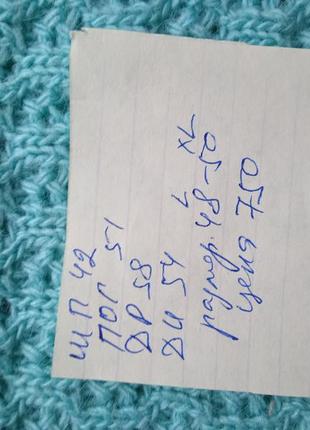 ШП 42
ПОГ 51
ДР 58
ДИ 54
L XL
размер. 48-50
цена 750